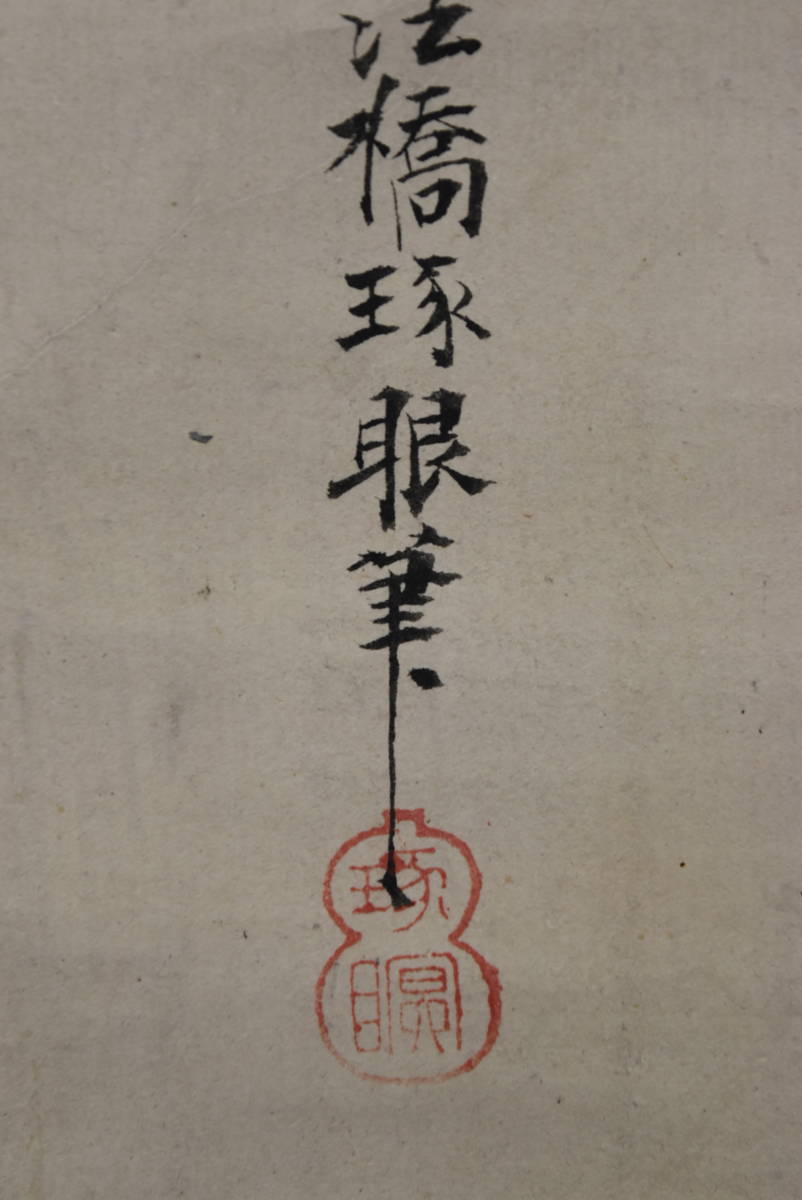 法橋琢眼筆
琢眼